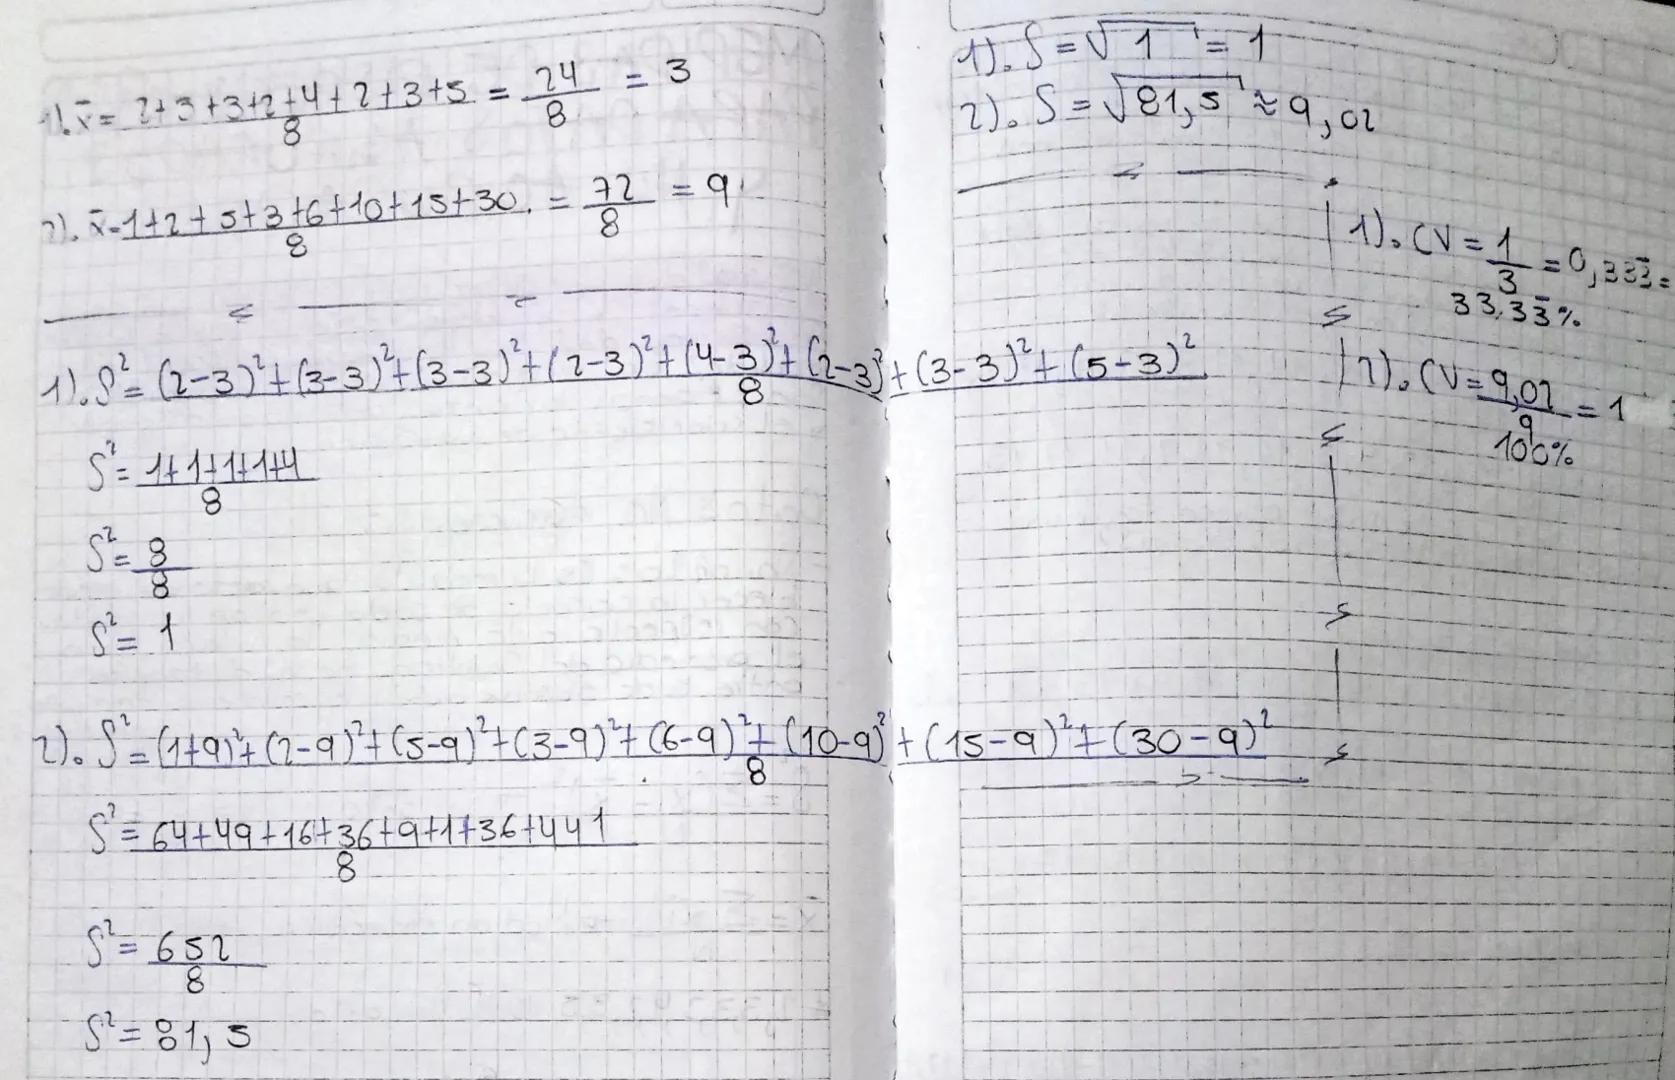 1). x̄ = 2+3+3+2+4+2+3+5 / 8 = 24 / 8 = 3
2). x̄ = 1+2+5+3+6+10+15+30. / 8 = 72 / 8 = 9
1). S² = (2-3)²+(3-3)²+(3-3)²+(2-3)²+(4-3)²+(2-3)²+(3-3)²+(5-3)² / 8
S² = 1+1+1+1+4 / 8
S² = 8 / 8
S² = 1
2). S² = (1+9)²+(2-9)²+(5-9)²+(3-9)²+(6-9)²+(10-9)²+(15-9)²+(30-9)² / 8
S² = 64+49+16+36+9+1+36+441 / 8
S² = 652 / 8
S² = 81,5
1). S = √1 = 1
2). S = √81,5 ≈ 9,02
1). CV = 1 / 3 = 0,333̄ =
33,33̄%
2). CV = 9,02 / 9 = 1
100%